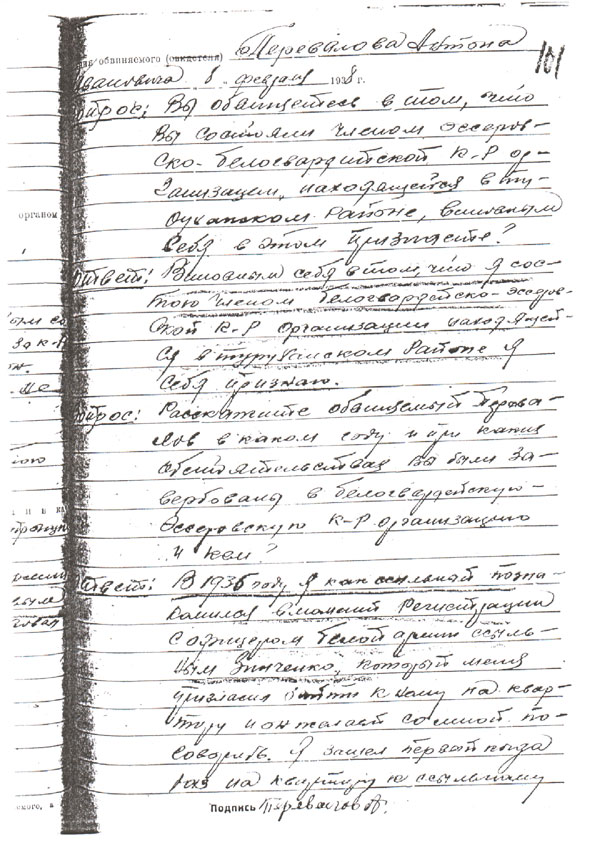 обвиняемого (свидетеля) Перевалова Антона
101
Ивановича 8 февраля 1938 г.
Вопрос: Вы обвищетесь в том, что
Вы состояли членом эссеров-
ско-белогвардейской К-Р ор-
ганизацеи, находящейся в Ту-
руханском Районе, виновным
себя в этом признаете?
органом
Ответ: Виновным себя в том что я сос-
тою членом белогвардейско-эссеров-
ской К-Р организации находящей-
ся в Туруханском Районе я
себя признаю.
Вопрос: Расскажите обвищемый Перева-
лов в каком году и при каких
обстоятельствах Вы были за-
вербованы в белогвардейскую-
эссеровскую К-Р. организацию
и кем?
Ответ: В 1936 году я как ссыльный позна-
комился в момент Регистрации
с офицером белой армии ссыль-
ным Зинченко, который меня
пригласил к нему на квар-
тиру и он желает со мной по-
говорить. Я зашел первый
раз на квартиру к ссыльному
Подпись Перевалов А.
ского, а